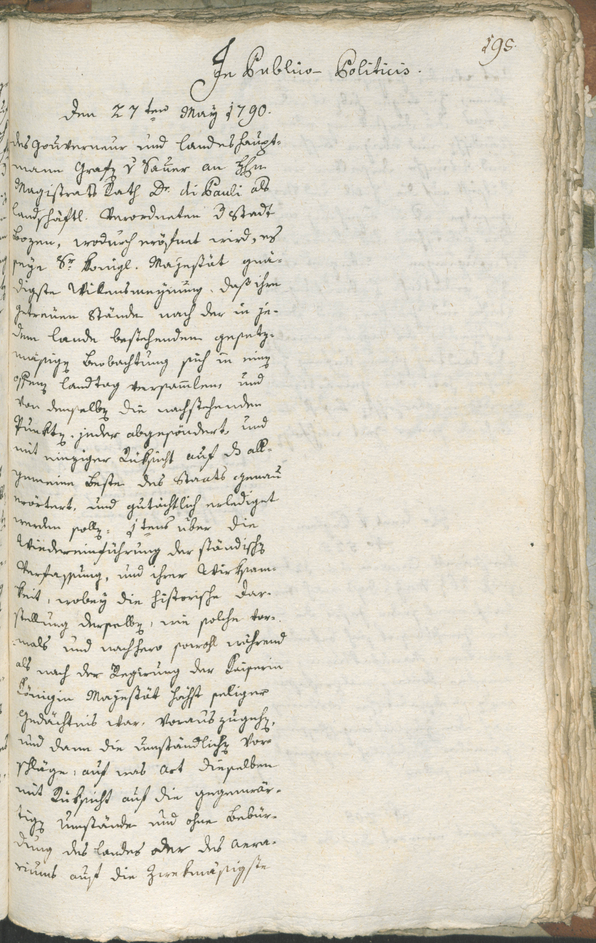 195.
In Publico-Politicis.
Den 27ten May 1790.
des Gouverneur und Landeshaupt-
mann Grafen v Sauer an Hrn
Magistrats Rath Dr. di Pauli als
landschäftl. Verordneten d Stadt
Bozen, wodurch eröfnet wird, es
seye Sr königl. Majestät gnä-
digste Willensmeynung, daß ihre
getreuen Stände nach der in je-
dem Lande bestehenden gesetz-
mäsigen Beobachtung sich in einen
offenen Landtag versammlen, und
von demselben die nachstehenden
Punkten, jeder abgesöndert, und
mit einziger Rüksicht auf ds all-
gemeine Beste des Staats genau
erörtert, und gutächtlich erlediget
werden sollen; 1tens über die
Wiedereinführung der ständischen
Verfassung, und ihrer Wirksam-
keit, wobey die historische Dar-
stellung derselben, wie solche vor-
mals und nachhero sowohl während
als nach der Regierung der Kaiserin
Königin Majestät höchst seeliger
Gedächtnis war, vorauszugehen,
und dann die umständlichen Vor-
schläge, auf was Art dieselben
mit Rüksicht auf die gegenwär-
tigen Umstände und ohne Bebür-
dung des Landes oder des Aera-
riums auf die zwekmäsigste